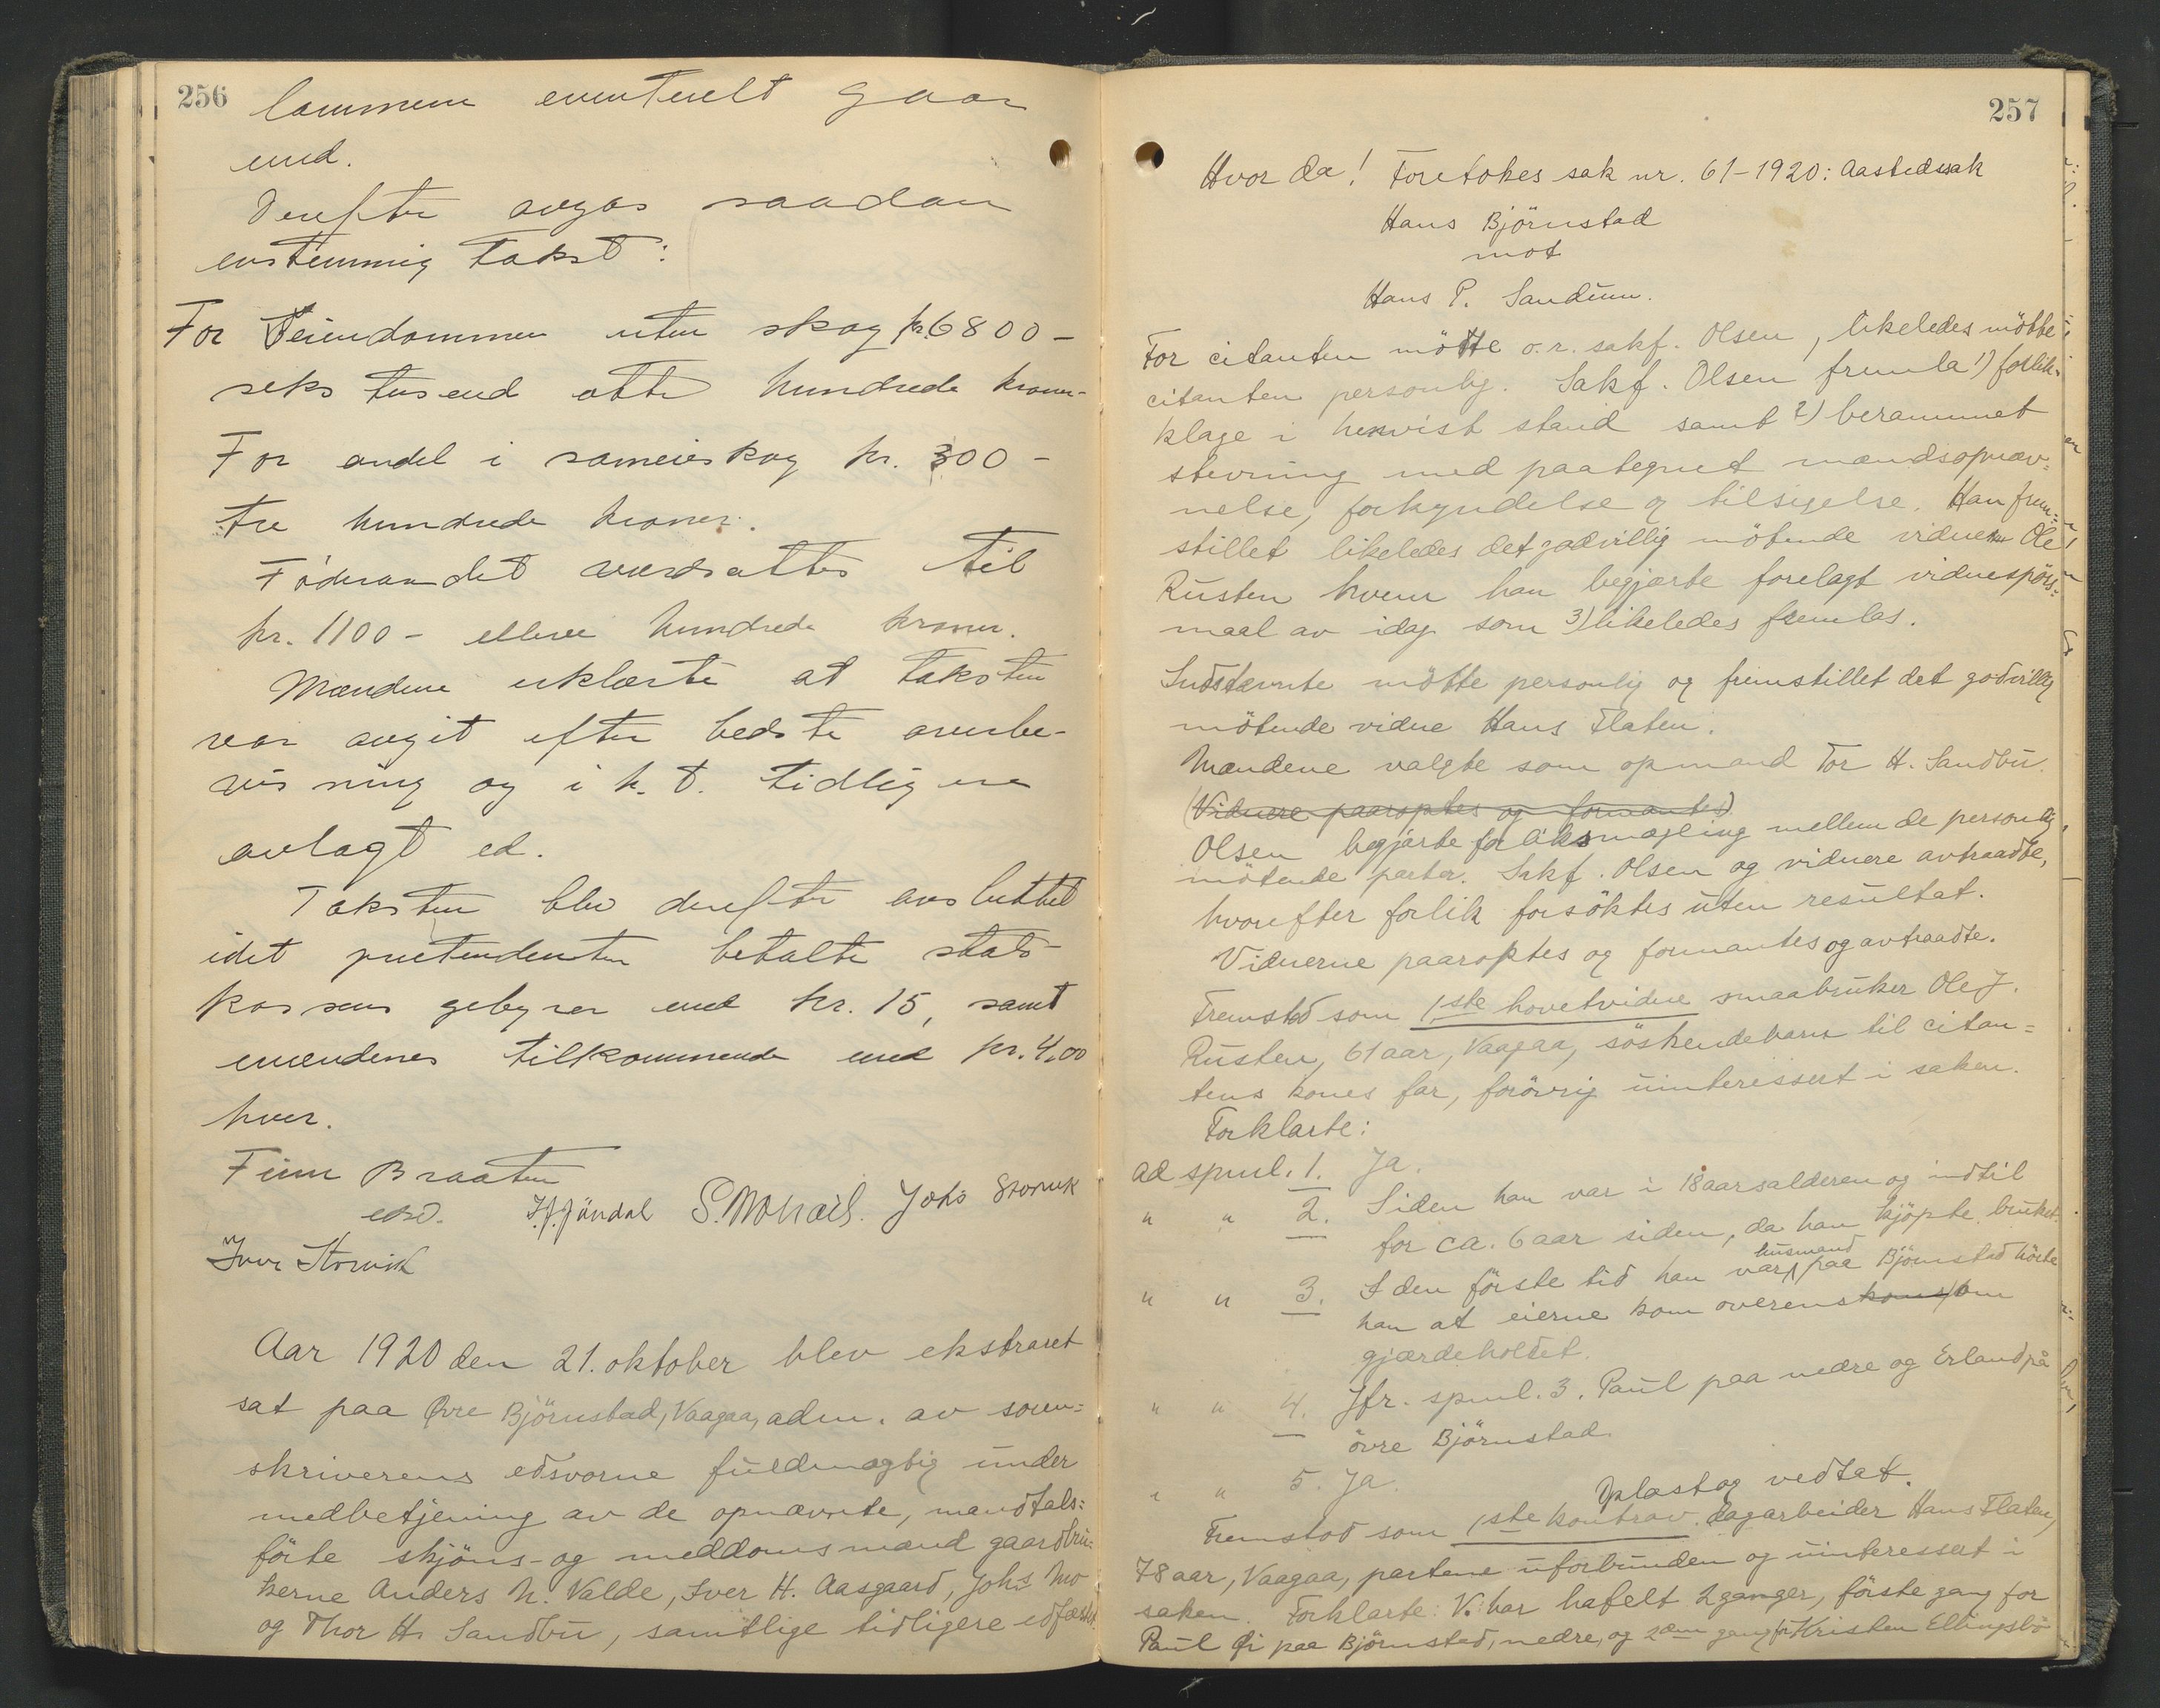 256
lommen eventuelt gaar
med.
Derefter avgas saadan
enstemmig takst:
For Eiendommen uten skog kr. 6800 -
seks tusend otte hundrede kroner -
For andel i sameieskog kr. 300 -
tre hundrede kroner.
Føderaadet værdsattes til
kr. 1100 - elleve hundrede kroner.
Mændene erklærte at taksten
var avgit efter bedste overbe-
visning og i h. t. tidligere
avlagt ed.
Taksten blev derefter avsluttet
idet pretendenten betalte stats-
kassens gebyrer med kr. 15, samt
mændenes tilkommende med kr. 4,00
hver.
Finn Braaten
edsv. Joho Storvik
Iver Storvik
Aar 1920 den 21. oktober blev ekstraret
sat paa Øvre Björnstad, Vaagaa, adm. av soren=
skriverens edsvorne fuldmægtig under
medbetjening av de opnævnte, mandtals=
förte skjöns- og meddomsmænd gaardbru=
kerne Anders N. Valde, Iver H. Aasgaard, Johs Mo
og Thor H. Sandbu, samtlige tidligere edfæstet.
257
Hvor da! Foretokes sak nr. 61-1920: Aastedssak
Hans Björnstad
mot
Hans P. Sandum.
For citanten mötte o.r. sakf. Olsen, likeledes mötte
citanten personlig. Sakf. Olsen fremla 1) forlik=
klage i henvist stand samt 2) berammet
stevning med paategnet mændsopnæv=
nelse, forkyndelse og tilsigelse. Han frem=
stillet likeledes det godvillig mötende vidne Ole
Rusten hvem han begjærte forelagt vidnespörs=
maal av idag som 3) likeledes fremlas.
Indstevnte mötte personlig og fremstillet det godvillig
mötende vidne Hans Flaten.
Mændene valgte som opmand Tor H. Sandbu.
(Vidnere paaroptes og formantes)
Olsen begjærte forliksmægling mellem de personlig
mötende parter. Sakf. Olsen og vidnere avtraadte,
hvorefter forlik forsöktes uten resultat.
Vidnerne paaroptes og formantes og avtraadte.
Fremstod som 1ste hovetvidne smaabruker Ole J.
Rusten, 61 aar, Vaagaa, söskendebarn til citan=
tens kones far, forövrig uinteressert i saken.
Forklarte:
ad spml. 1. Ja.
" " 2. Siden han var i 18 aarsalderen og indtil
for ca. 6 aar siden, da han kjöpte bruket.
" " 3. I den förste tid han var husmand paa Björnstad hörte
han at eierne kom overens om
gjærdeholdet.
" " 4. Jfr. spml. 3. Paul paa nedre og Erland på
övre Björnstad.
" " 5. Ja.
Oplæst og vedtat.
Fremstod som 1ste kontrav. dagarbeider Hans Flaten,
78 aar, Vaagaa, partene uforbunden og uinteressert i
saken. Forklarte: V. har hafelt 2 ganger, förste gang for
Paul Øi paa Björnstad, nedre, og 2den gang for Kristen Ellingsbö